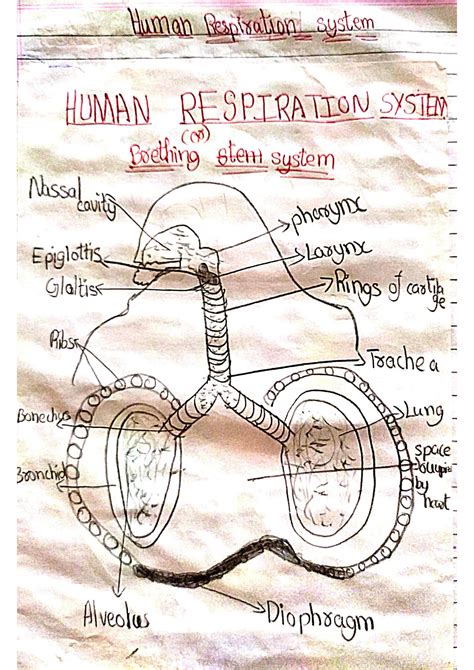 Human Respiration system
HUMAN RESPIRATION SYSTEM
(or)
Brething stem system
Nassal cavity
pharynx
Epiglottis
Larynx
Glaltis
Rings of cartila
ge
Ribs
Trachea
Lung
space
by
Alveolus
Diaphragm